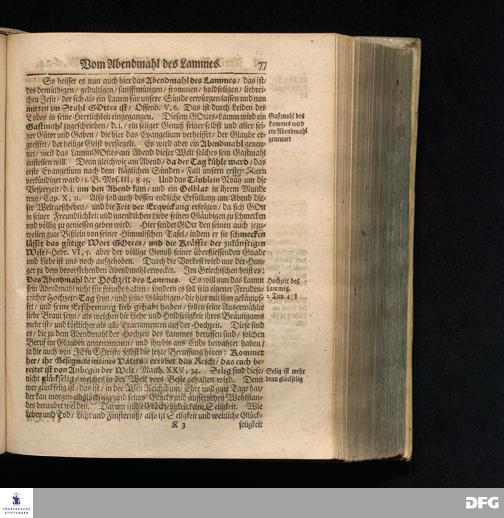 Vom Abendmahl des Lammes. 77
So heisset es nun auch hier das Abendmahl des Lammes / das ist /
des demüthigen / gedultigen / sanfftmütigen / frommen / holdseligen / liebrei-
chen Jesu / der sich als ein Lamm für unsere Sünde erwürgen lassen und nun
mitten im Stuhl GOttes ist / Offenb. V, 6. Das ist durch Leiden des
Todes in seine Herrlichkeit eingegangen. Diesem GOttes-Lamm wird ein
Gastmahl zugeschrieben / d. i. / ein seliger Genuß seiner selbst und aller sei-
ner Güter und Gaben / die hier das Evangelium verheisset / der Glaube er-
greiffet / der heilige Geist versiegelt. Es wird aber ein Abendmahl genen-
net / weil das Lamm GOttes am Abend dieser Welt solches sein Gastmahl
anstellen will. Denn gleichwie am Abend / da der Tag kühle ward / das
erste Evangelium nach dem kläglichen Sünden-Fall unsern ersten Eltern
verkündiget ward / 1. B. Mos. III, 8. 15. Und das Täublein Noäh um die
Vesperzeit / d. i. um den Abend kam / und ein Oelblat in ihrem Munde
trug / Cap. X, 11. Also soll auch dessen endliche Erfüllung am Abend die-
ser Welt geschehen / und die Zeit der Erquickung erfolgen / da sich GOtt
in seiner Freundlichkeit und unendlichen Liebe seinen Gläubigen zu schmecken
und völlig zu geniessen geben wird. Hier sendet GOtt den seinen auch je zu-
weilen gute Bißlein von seiner Himmlischen Tafel / indem er sie schmecken
lässet das gütige Wort GOttes / und die Kräffte der zukünfftigen
Welt / Hebr. VI, 5. aber der völlige Genuß seiner überfliessenden Gnade
und Liebe ist uns noch aufgehoben. Durch die Vorkost wird nur der Hun-
ger zu dem bevorstehenden Abendmahl erwecket. Im Griechischen heist es:
Das Abendmahl der Hochzeit des Lammes. So will nun das Lamm
sein Abendmahl nicht für Freunde halten / sondern es soll sein eigener Freuden-
reicher Hochzeit-Tag seyn / und seine Gläubigen / die hier mit ihm gekämpf-
fet / und seine Erscheinung lieb gehabt haben / sollen seine Auserwählte
liebe Braut seyn / als welchen die Liebe und Holdseligkeit ihres Bräutigams
mehr ist / und köstlicher als alle Tractamenten auf der Hochzeit. Diese sind
es / die zu dem Abendmahl der Hochzeit des Lammes beruffen sind / solchen
Beruf im Glauben angenommen / und ihn bis ans Ende bewahret haben /
ja die auch von JEsu Christo selbst die letzte Beruffung hören: Kommet
her / ihr Gesegnete meines Vaters / ererbet das Reich / das euch be-
reitet ist von Anbegin der Welt / Matth. XXV, 34. Selig sind diese /
nicht glückselig / welches in der Welt vors Beste gehalten wird. Denn
wer glückselig ist / das ist / in der Welt Reichthum / Ehre und gute Tage hat /
der kan morgen unglückselig und seines Glücks und äusserlichen Wohlstan-
des beraubet werden. Darum ist die Glückseligkeit keine Seligkeit. Wie
Leben und Tod / Licht und Finsterniß / also ist Seligkeit und weltliche Glück-
K 3 seligkeit
Gastmahl des
Lammes wird
ein Abendmahl
genennet
Hochzeit des
Lammes.
2. Tim. 4 / 8
Selig ist mehr
denn glückselig
FRANCKESCHE
STIFTUNGEN
DFG